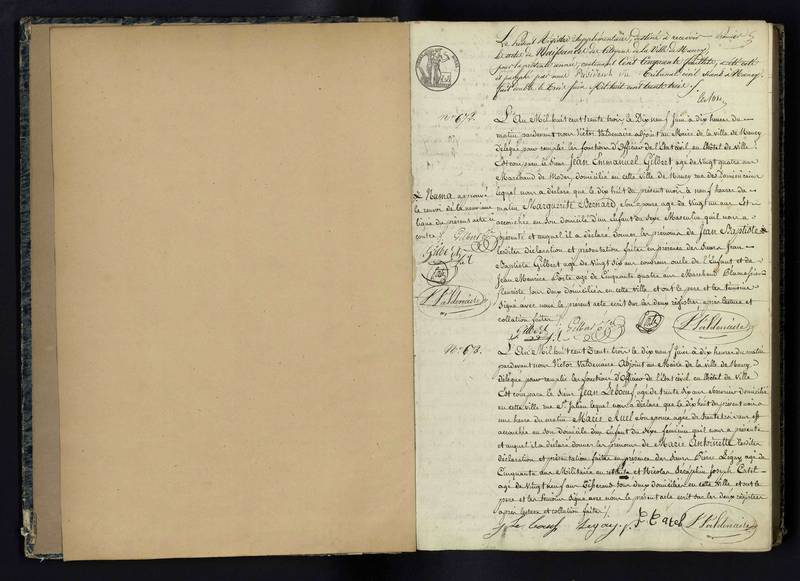 Le Présent Registre Supplémentaire, destiné à recevoir
les actes de Naissances des Citoyens de la Ville de Nancy,
pour la présente année, contenant Cent Cinquante feuillets, a été coté
et paraphé par nous Président du Tribunal civil séant à Nancy.
fait double le trois Juin Mil huit cent trente trois ./.
N° 672.
L'An Mil huit cent trente trois le Dix neuf Juin à dix heures du
matin pardevant nous Victor Valdenaire adjoint au Maire de la ville de Nancy
délégué pour remplir les fonctions d'Officier de l'Etat civil en l'hôtel de Ville
Est comparu le Sieur Jean Emmanuel Gilbert agé de Vingt quatre ans
Marchand de Modes, domicilié en cette ville de Nancy rue des Dominicains
lequel nous a déclaré que le dix huit du présent mois à neuf heures du
matin Marguerite Bernard son épouse agée de vingt un ans Est
accouchée en son domicile d'un Enfant du Sexe Masculin qu'il nous a
présenté et auquel il a déclaré donner les prénoms de Jean Baptiste
lesdites déclaration et présentation faites en présence des Sieurs Jean
Baptiste Gilbert agé de Vingt six ans oncle de l'Enfant et de
Jean Maurice agé de Cinquante quatre ans Marchand Plumassier
fleuriste tous deux domiciliés en cette ville et ont le pere et les témoins
Signé avec nous le présent acte écrit sur les deux régistres après lecture et
collation faites
& Numa approuvé
le renvoi de la neuvième
ligne du présent acte ci
contre ./. Gilbert
Gilbert
V Valdenaire
Gilbert Gilbert V Valdenaire
N° 673.
L'An Mil huit cent Trente trois le dix neuf Juin à dix heures du matin
pardevant nous Victor Valdenaire Adjoint au Maire de la Ville de Nancy
délégué pour remplir les fonctions d'Officier de l'Etat civil en l'hôtel de Ville
Est comparu le Sieur Jean Leboeuf agé de trente six ans domicilié
en cette ville rue St. Julien lequel nous a déclaré que le dix huit du présent mois à
une heure du matin Marie Ruel son épouse agée de trente six ans est
accouchée en son domicile d'un Enfant du sexe féminin qu'il nous a présenté
et auquel il a déclaré donner les prénoms de Marie Antoinette lesdites
déclaration et présentation faites en présence des Sieurs Pierre agé de
Cinquante ans Militaire en retraite et Nicolas Séraphin Joseph
agé de Vingt neuf ans Tisserand tous deux domiciliés en cette Ville et ont le
pere et les témoins signé avec nous le présent acte écrit sur les deux régistres
après lecture et collation faites ./.
V Valdenaire